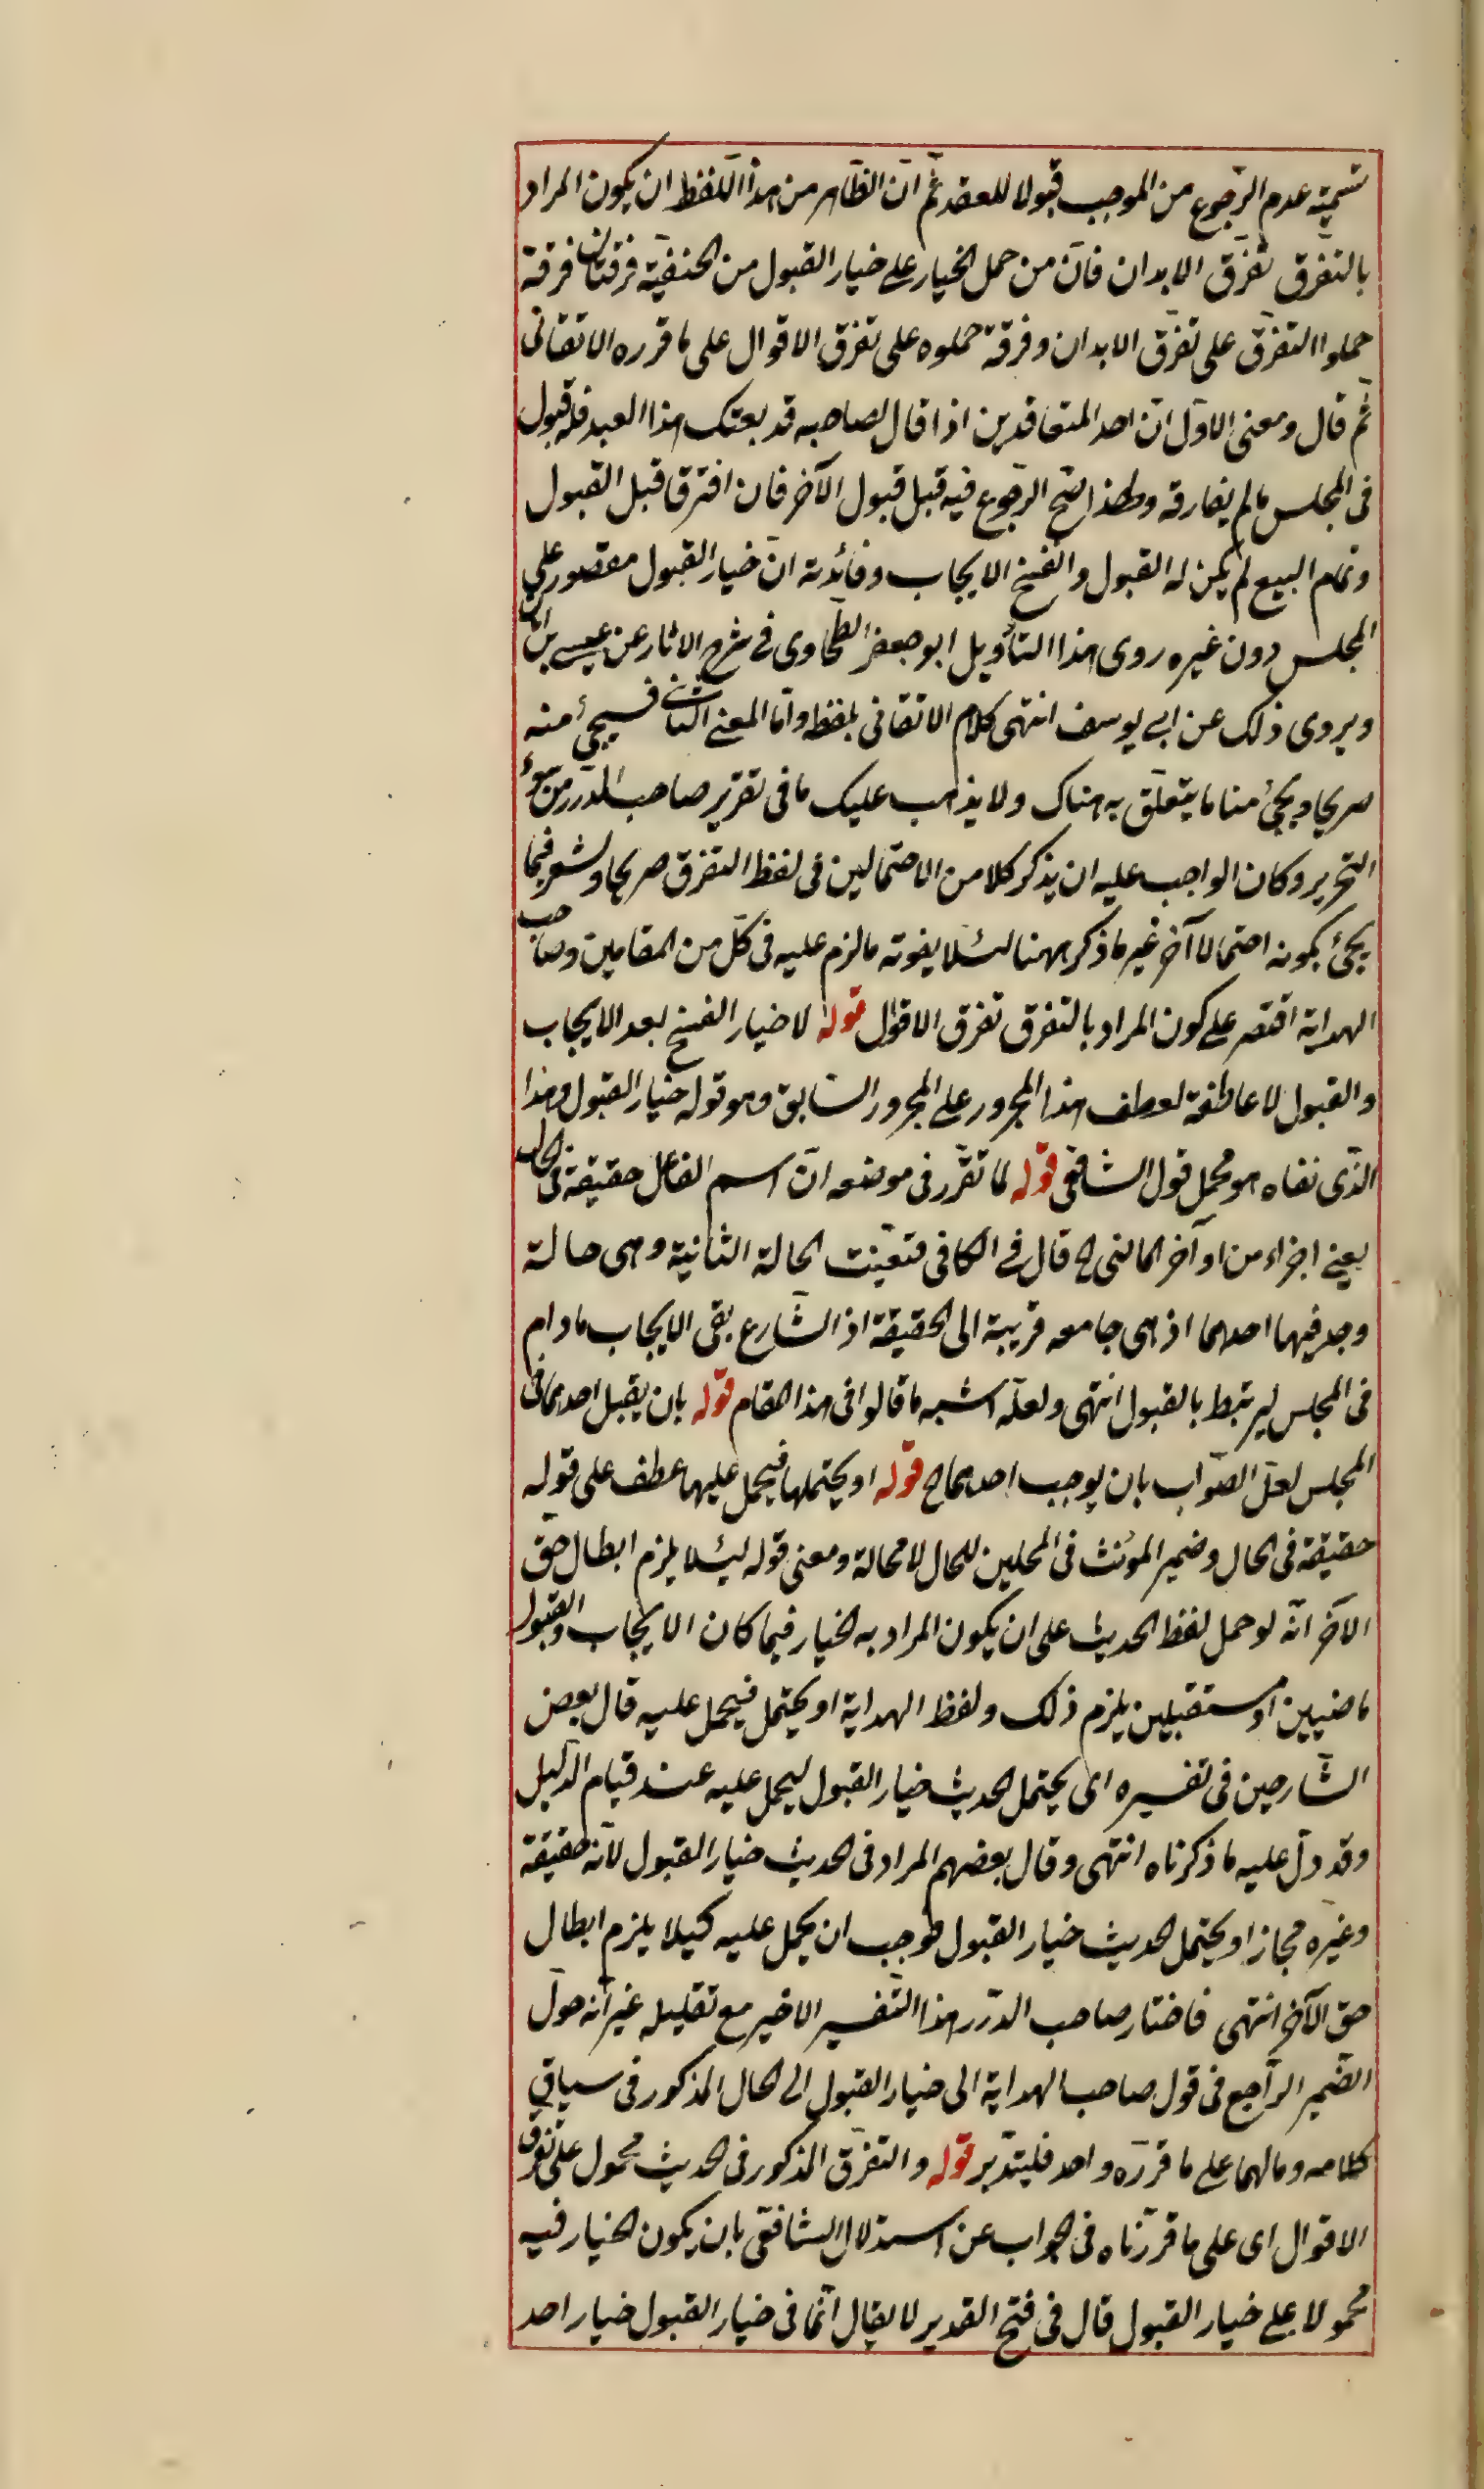 تسمية عدم الرّجوع من الموجب قبولا للعقد ثم انّ الظّاهر من هذا اللّفظ ان يكون المراد
بالتفرّق تفرّق الابدان فانّ من حمل الخيار على خيار القبول من الحنفيّة فرقتان فرقة
حملوا التفرّق على تفرّق الابدان وفرقة حملوه على تفرّق الاقوال على ما قرره الاتقانى
ثم قال ومعنى الاوّل انّ احد المتعاقدين اذا قال لصاحبه قد بعتك هذا العبد فله قبول
فى المجلس ما لم يفارقه ولهذا صحّ الرّجوع فيه قبل قبول الآخر فان افترقا قبل القبول
وتمام البيع لم يكن له القبول وانفسخ الايجاب وفائدته انّ خيار القبول مقصور على
المجلس دون غيره روى هذا التأويل ابو جعفر الطّحاوى فى شرح الاثار عن عيسى بن ابان
ويروى ذلك عن ابى يوسف انتهى كلام الاتقانى بلفظه وامّا المعنى الثانى فسيجئ منه
صريحا ويجئ منا ما يتعلّق به هناك ولا يذهب عليك ما فى تقرير صاحب الدّرر من سوء
التحرير وكان الواجب عليه ان يذكر كلا من الاحتمالين فى لفظ التفرّق صريحا ويشعر فيما
يجئ بكونه احتمالا آخر غير ما ذكر ههنا لئلا يفوته ما لزم عليه فى كلّ من المقامين وصاحب
الهداية اقتصر على كون المراد بالتفرق تفرق الاقوال قوله لا خيار الفسخ بعد الايجاب
والقبول لا عاطفة لعطف هذا المجرور على المجرور السّابق وهو قوله خيار القبول وهذا
الذّى نفاه هو محمل قول الشافعى قوله لما تقرّر فى موضعه انّ اسم الفاعل حقيقة فى الحال
يعنى اجزاء من اواخر الماضى الخ قال فى الكافى فتعيّنت الحالة الثانية وهى حالة
وجد فيها احدهما اذ هى جامعه قريبة الى الحقيقة اذ الشّارع بقى الايجاب مادام
فى المجلس ليرتبط بالقبول انتهى ولعلّه اشبه ما قالوا فى هذا المقام قوله بان يقبل احدهما فى
المجلس لعلّ الصّواب بان يوجب احدهما الخ قوله او يحتملها فيحمل عليها عطف على قوله
حقيقة فى الحال وضمير المؤنث فى المحلين للحال لا محالة ومعنى قوله لئلا يلزم ابطال حقّ
الآخر انّه لو حمل لفظ الحديث على ان يكون المراد به الخيار فيما كان الايجاب والقبول
ماضيين او مستقبلين يلزم ذلك ولفظ الهداية او يحتمل فيحمل عليه قال بعض
الشّارحين فى تفسيره اى يحتمل الحديث خيار القبول ليحمل عليه عند قيام الدّليل
وقد دلّ عليه ما ذكرناه انتهى وقال بعضهم المراد فى الحديث خيار القبول لانّه حقيقة
وغيره مجاز او يحتمل الحديث خيار القبول فوجب ان يحمل عليه كيلا يلزم ابطال
حق الآخر انتهى فاختار صاحب الدّرر هذا التّفسير الاخير مع تقليله غير انّه حوّل
الضّمير الرّاجع فى قول صاحب الهداية الى خيار القبول الى الحال المذكور فى سياق
كلامه ومآلهما على ما قرّره واحد فليتدّبر قوله والتفرّق المذكور فى الحديث محمول على تفرّق
الاقوال اى على ما قرّرناه فى الجواب عن استدلال الشافعّى بان يكون الخيار فيه
محمولا على خيار القبول قال فى فتح القدير لا يقال انّما فى خيار القبول خيار احد